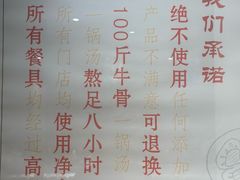 我们承诺
绝不使用任何添加
产品不满意可退换
100斤牛骨一锅汤
一锅汤熬足八小时
所有门店均使用净
所有餐具均经过高